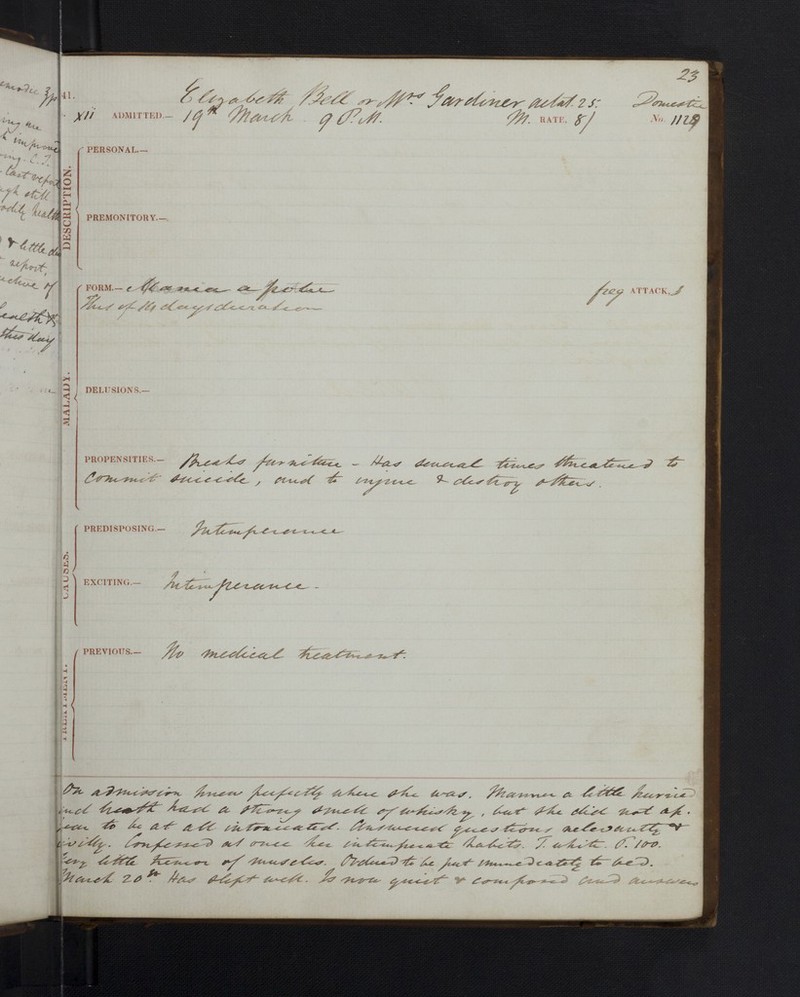 23
41.
Elizabeth Bell or Mrs Gardiner aetat. 25. Domestic
XII ADMITTED.— 19th March. 9 P.M. M. RATE. 8/ No. 1129
DESCRIPTION.
PERSONAL.—
PREMONITORY.—
MALADY.
FORM.— Mania a potu freq ATTACK.
This of days duration
DELUSIONS.—
PROPENSITIES.— Breaks furniture - Has several times threatened to
Commit suicide, and to injure & destroy others.
CAUSES.
PREDISPOSING.— Intemperance
EXCITING.— Intemperance -
TREATMENT.
PREVIOUS.— No medical treatment.
On admission knew perfectly where she was. Manner a little hurried
and breath had a strong smell of whisky, but she did not ap-
pear to be at all intoxicated. Answered questions relevantly &
civilly. Confessed at once her intemperate habits. T. white. P. 100.
Very little tremor of muscles. Ordered to be put immediately to bed.
March 20th Has slept well. Is now quiet & composed and answers